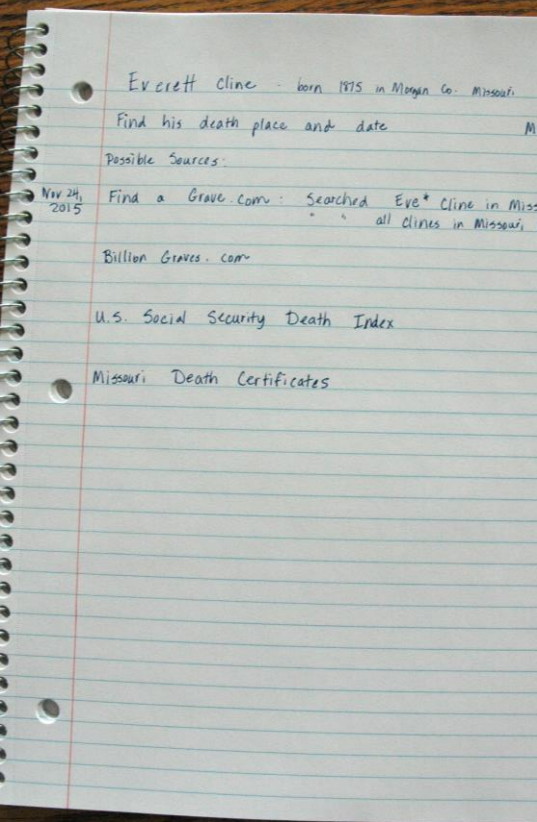 Everett Cline - born 1875 in Morgan Co. Missouri
Find his death place and date M
Possible Sources:
Nov 24, Find a Grave.com: Searched Eve* Cline in Miss
2015 " " all Clines in Missouri
Billion Graves.com
U.S. Social Security Death Index
Missouri Death Certificates